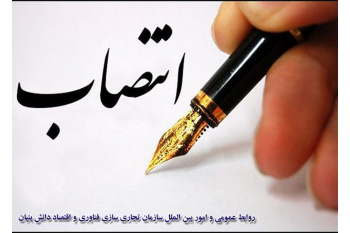 انتصاب
روابط عمومی و امور بین الملل سازمان تجاری سازی فناوری و اقتصاد دانش بنیان